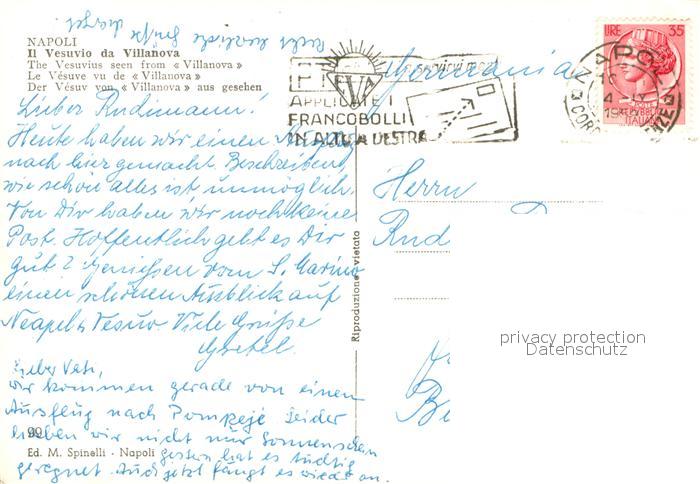 Recht herzliche Grüße
NAPOLI
Il Vesuvio da Villanova
The Vesuvius seen from « Villanova »
Le Vésuve vu de « Villanova »
Der Vésuv von « Villanova » aus gesehen
Lieber Rudimann!
Heute haben wir einen
nach hier gemacht. Beschreiben
wie schön alles ist unmöglich.
Von Dir haben wir noch keine
Post. Hoffentlich geht es Dir
gut? Genießen vom S. Marino
einen schönen Ausblick auf
Neapel u Vesuv. Viele Grüße
Gretel.
Lieber Vati,
wir kommen gerade von einem
Ausflug nach Pompeje leider
haben wir nicht nur Sonnenschein
gestern hat es tüchtig
geregnet. Auch jetzt fängt es wieder an.
99
Ed. M. Spinelli - Napoli
Riproduzione vietata
APPLICATE I
FRANCOBOLLI
IN ALTO A DESTRA
Germania
LIRE 55
POSTE
ITALIANE
NAPOLI
Herrn
Rud
privacy protection
Datenschutz